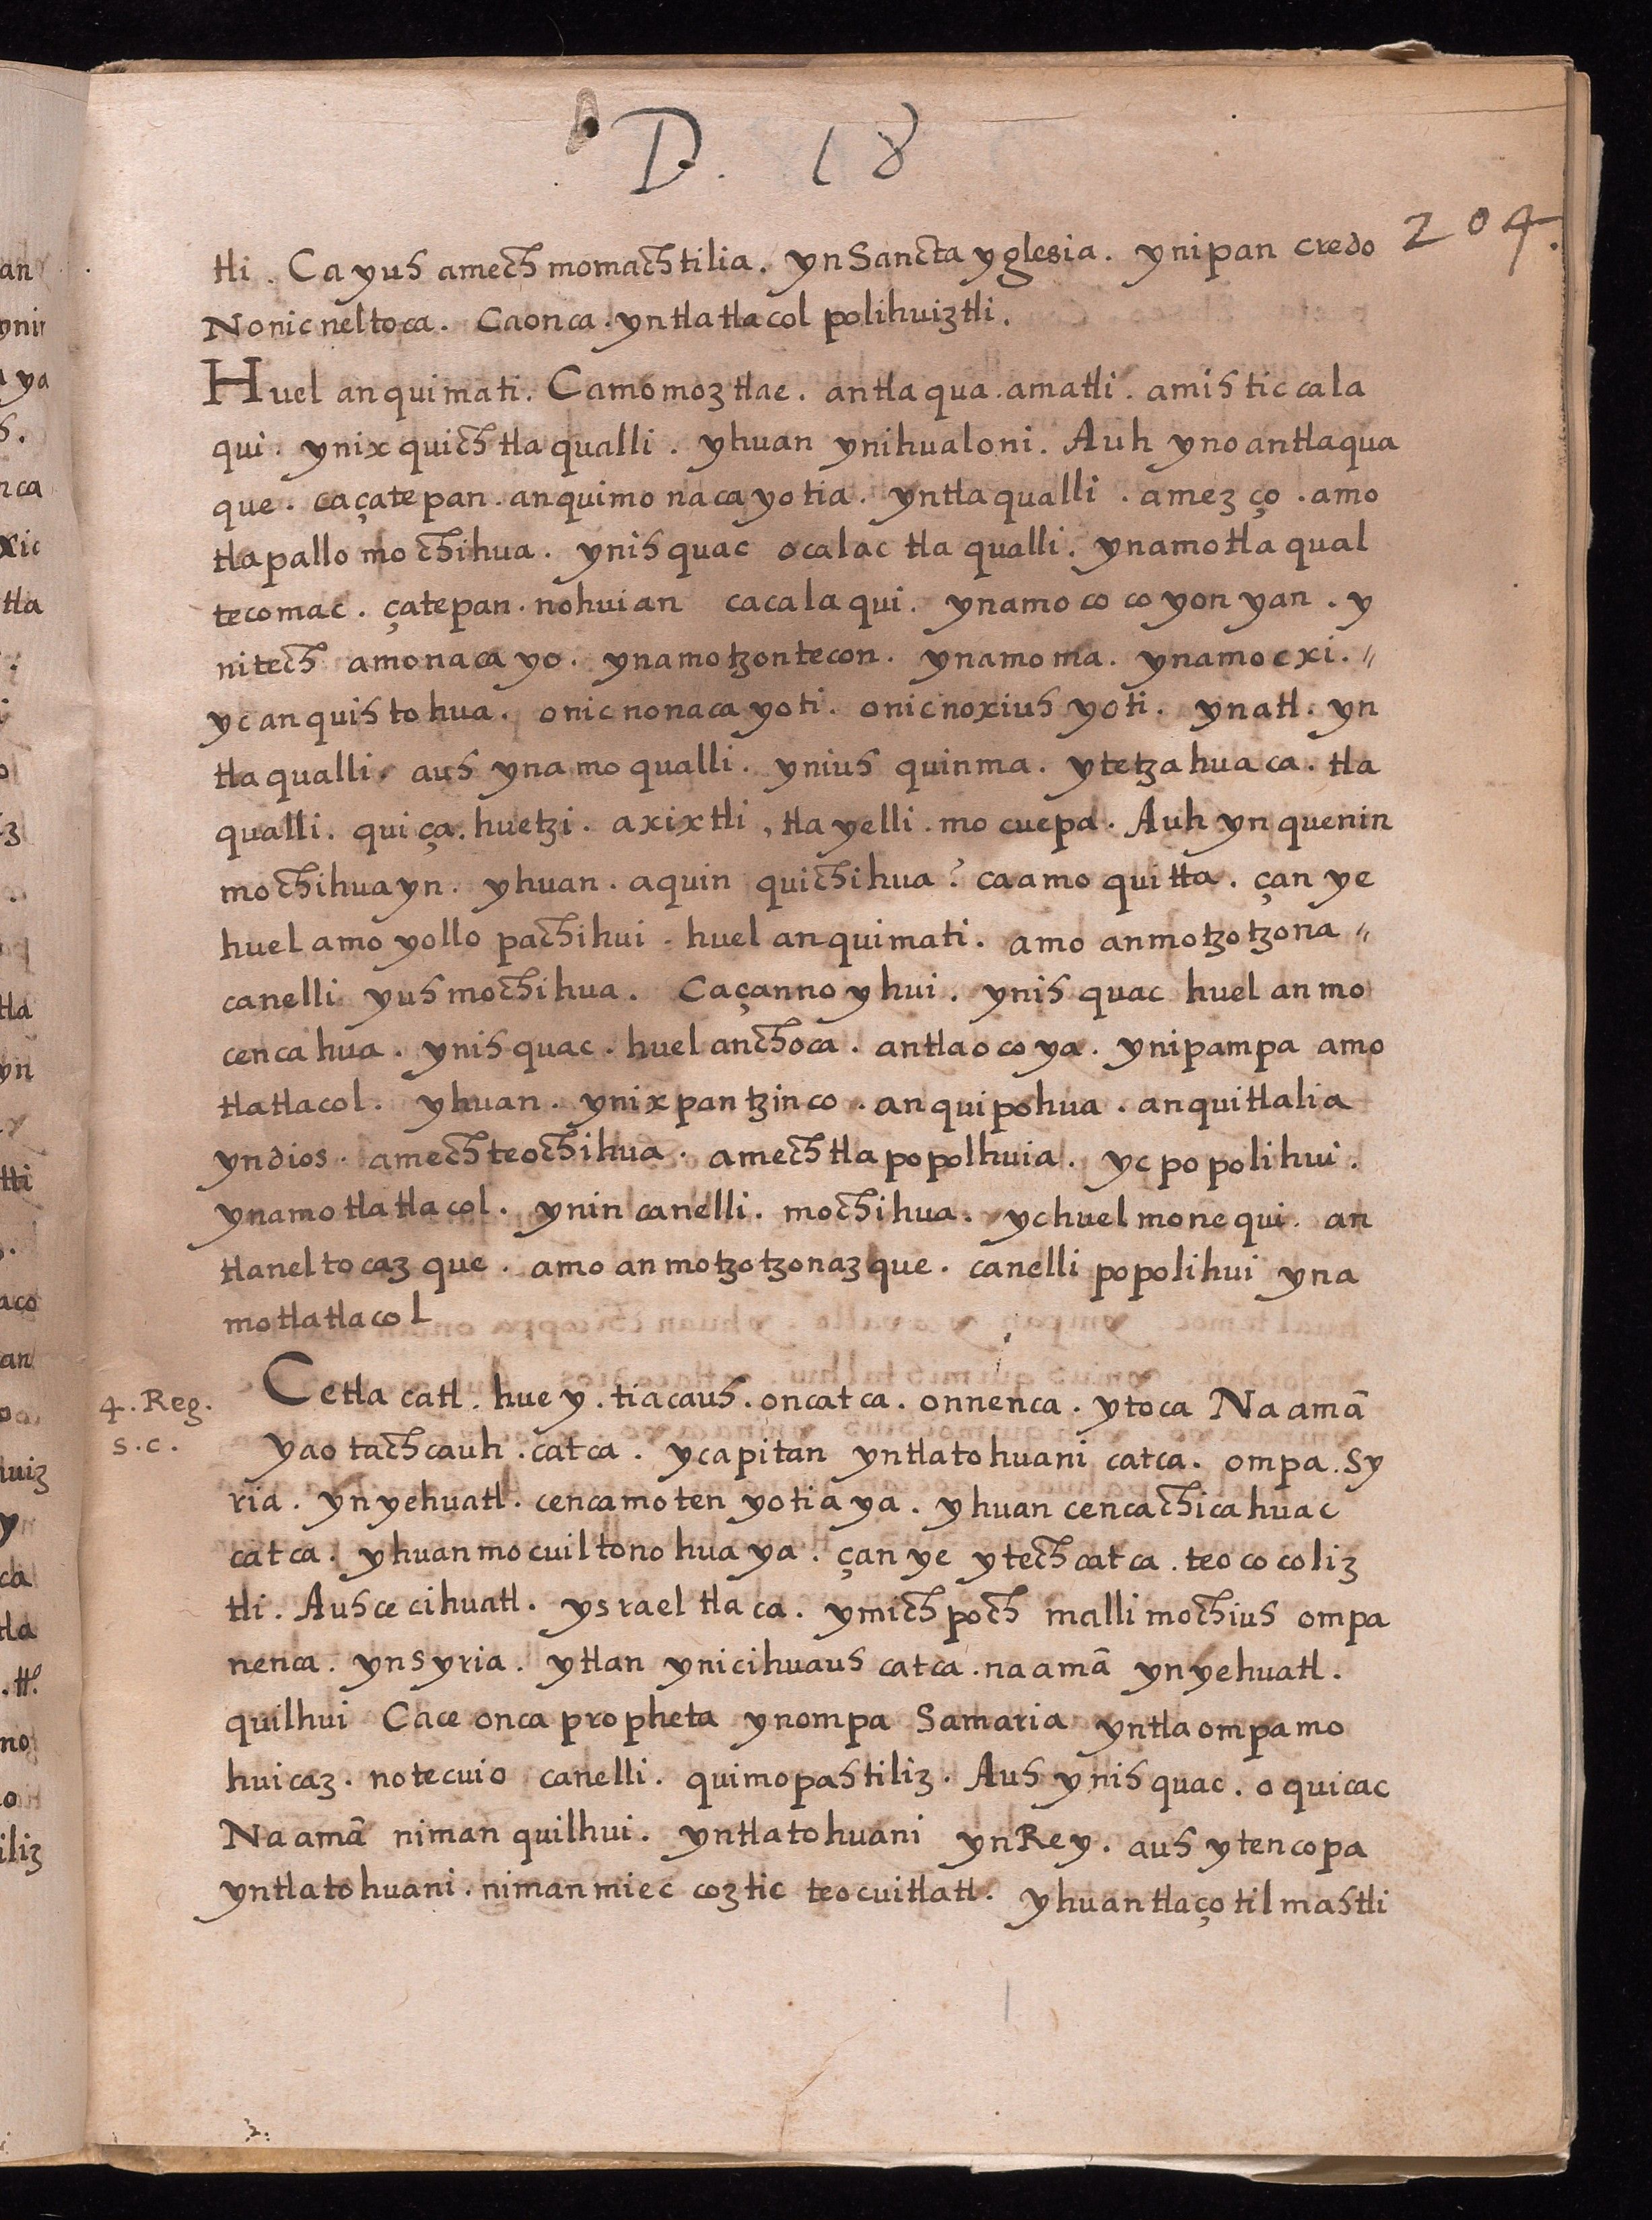 D. 18
204.
tli. Ca yuh amech momachtilia. yn Sancta yglesia. ynipan credo
Nonicneltoca. Caonca. yntlatlacol polihuiztli.
Huel anquimati. Camomoztlae. antlaqua. amatli. amihticcala
qui. ynixquich tlaqualli. yhuan ynihualoni. Auh ynoantlaqua
que. caçatepan. anquimonacayotia. yntlaqualli. amezço. amo
tlapallo mochihua. ynihquac ocalac tlaqualli. ynamotlaqual
tecomac. çatepan. nohuian cacalaqui. ynamococoyonyan. y
nitech amonacayo. ynamotzontecon. ynamoma. ynamocxi. "
yc anquihtohua. onicnonacayoti. onicnoxiuhyoti. ynatl. yn
tlaqualli. auh ynamoqualli. yniuh quinma. ytetzahuaca. tla
qualli. quiça. huetzi. axixtli, tlayelli. mocuepa. Auh ynquenin
mochihuayn. yhuan. aquin quichihua? caamo quitta. çan ye
huel amoyollo pachihui. huel anquimati. amo anmotzotzona "
canelli yuhmochihua. Caçannoyhui. ynihquac huel anmo
cencahua. ynihquac. huel anchoca. antlaocoya. ynipampa amo
tlatlacol. yhuan. ynixpantzinco. anquipohua. anquitlalia
yndios. amechteochihua. amechtlapopolhuia. ycpopolihui.
ynamotlatlacol. ynin canelli. mochihua. ychuelmonequi. an
tlaneltocazque. amo anmotzotzonazque. canelli popolihui yna
motlatlacol
4. Reg.
5. c.
Cetlacatl. huey. tiacauh. oncatca. onnenca. ytoca Naamā
yaotachcauh. catca. ycapitan yntlatohuani catca. ompa. Sy
ria. ynyehuatl. cencamotenyotiaya. yhuan cencachicahuac
catca. yhuanmocuiltonohuaya. çan ye ytechcatca. teococoliz
tli. Auhcecihuatl. ysraeltlaca. ymichpoch malli mochiuh ompa
nenca. ynsyria. ytlan ynicihuauh catca. naamā ynyehuatl.
quilhui Cace onca propheta ynompa Samaria yntlaompamo
huicaz. notecuio canelli. quimopahtiliz. Auh ynihquac. oquicac
Naamā niman quilhui. yntlatohuani ynRey. auh ytencopa
yntlatohuani. nimanmiec coztic teocuitlatl. yhuantlaçotilmahtli